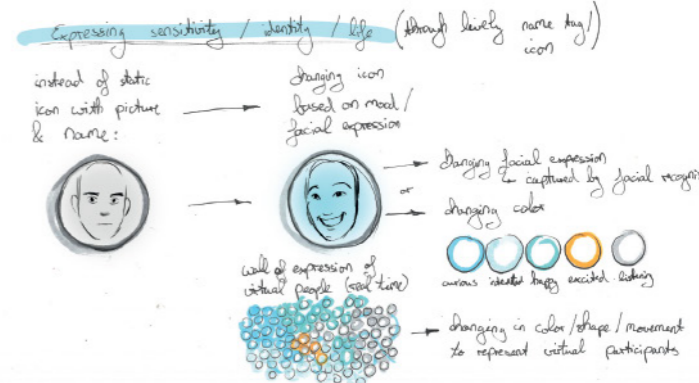 Expressing sensitivity / identity / life (through lively name tag/
icon)
instead of static
icon with picture
& name:
changing icon
based on mood/
facial expression
changing facial expression
captured by facial recogni
or
changing color
curious interested happy excited listening
wall of expression of
virtual people (real time)
changing in color/shape/movement
to represent virtual participants